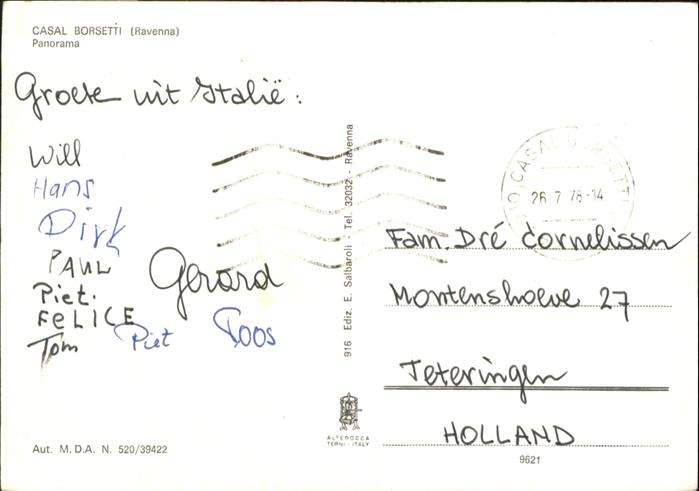 CASAL BORSETTI (Ravenna)
Panorama
Groete uit Italië:
Will
Hans
Dirk
PAUL
Gerard
Piet.
FELICE
Tom
Piet
Toos
916 Ediz. E. Salbaroli - Tel. 32032 - Ravenna
26 7 78-14
Fam. Dré Cornelissen
Montenshoeve 27
Teteringen
HOLLAND
ALTEROCCA
TERNI - ITALY
Aut. M.D.A. N. 520/39422
9621